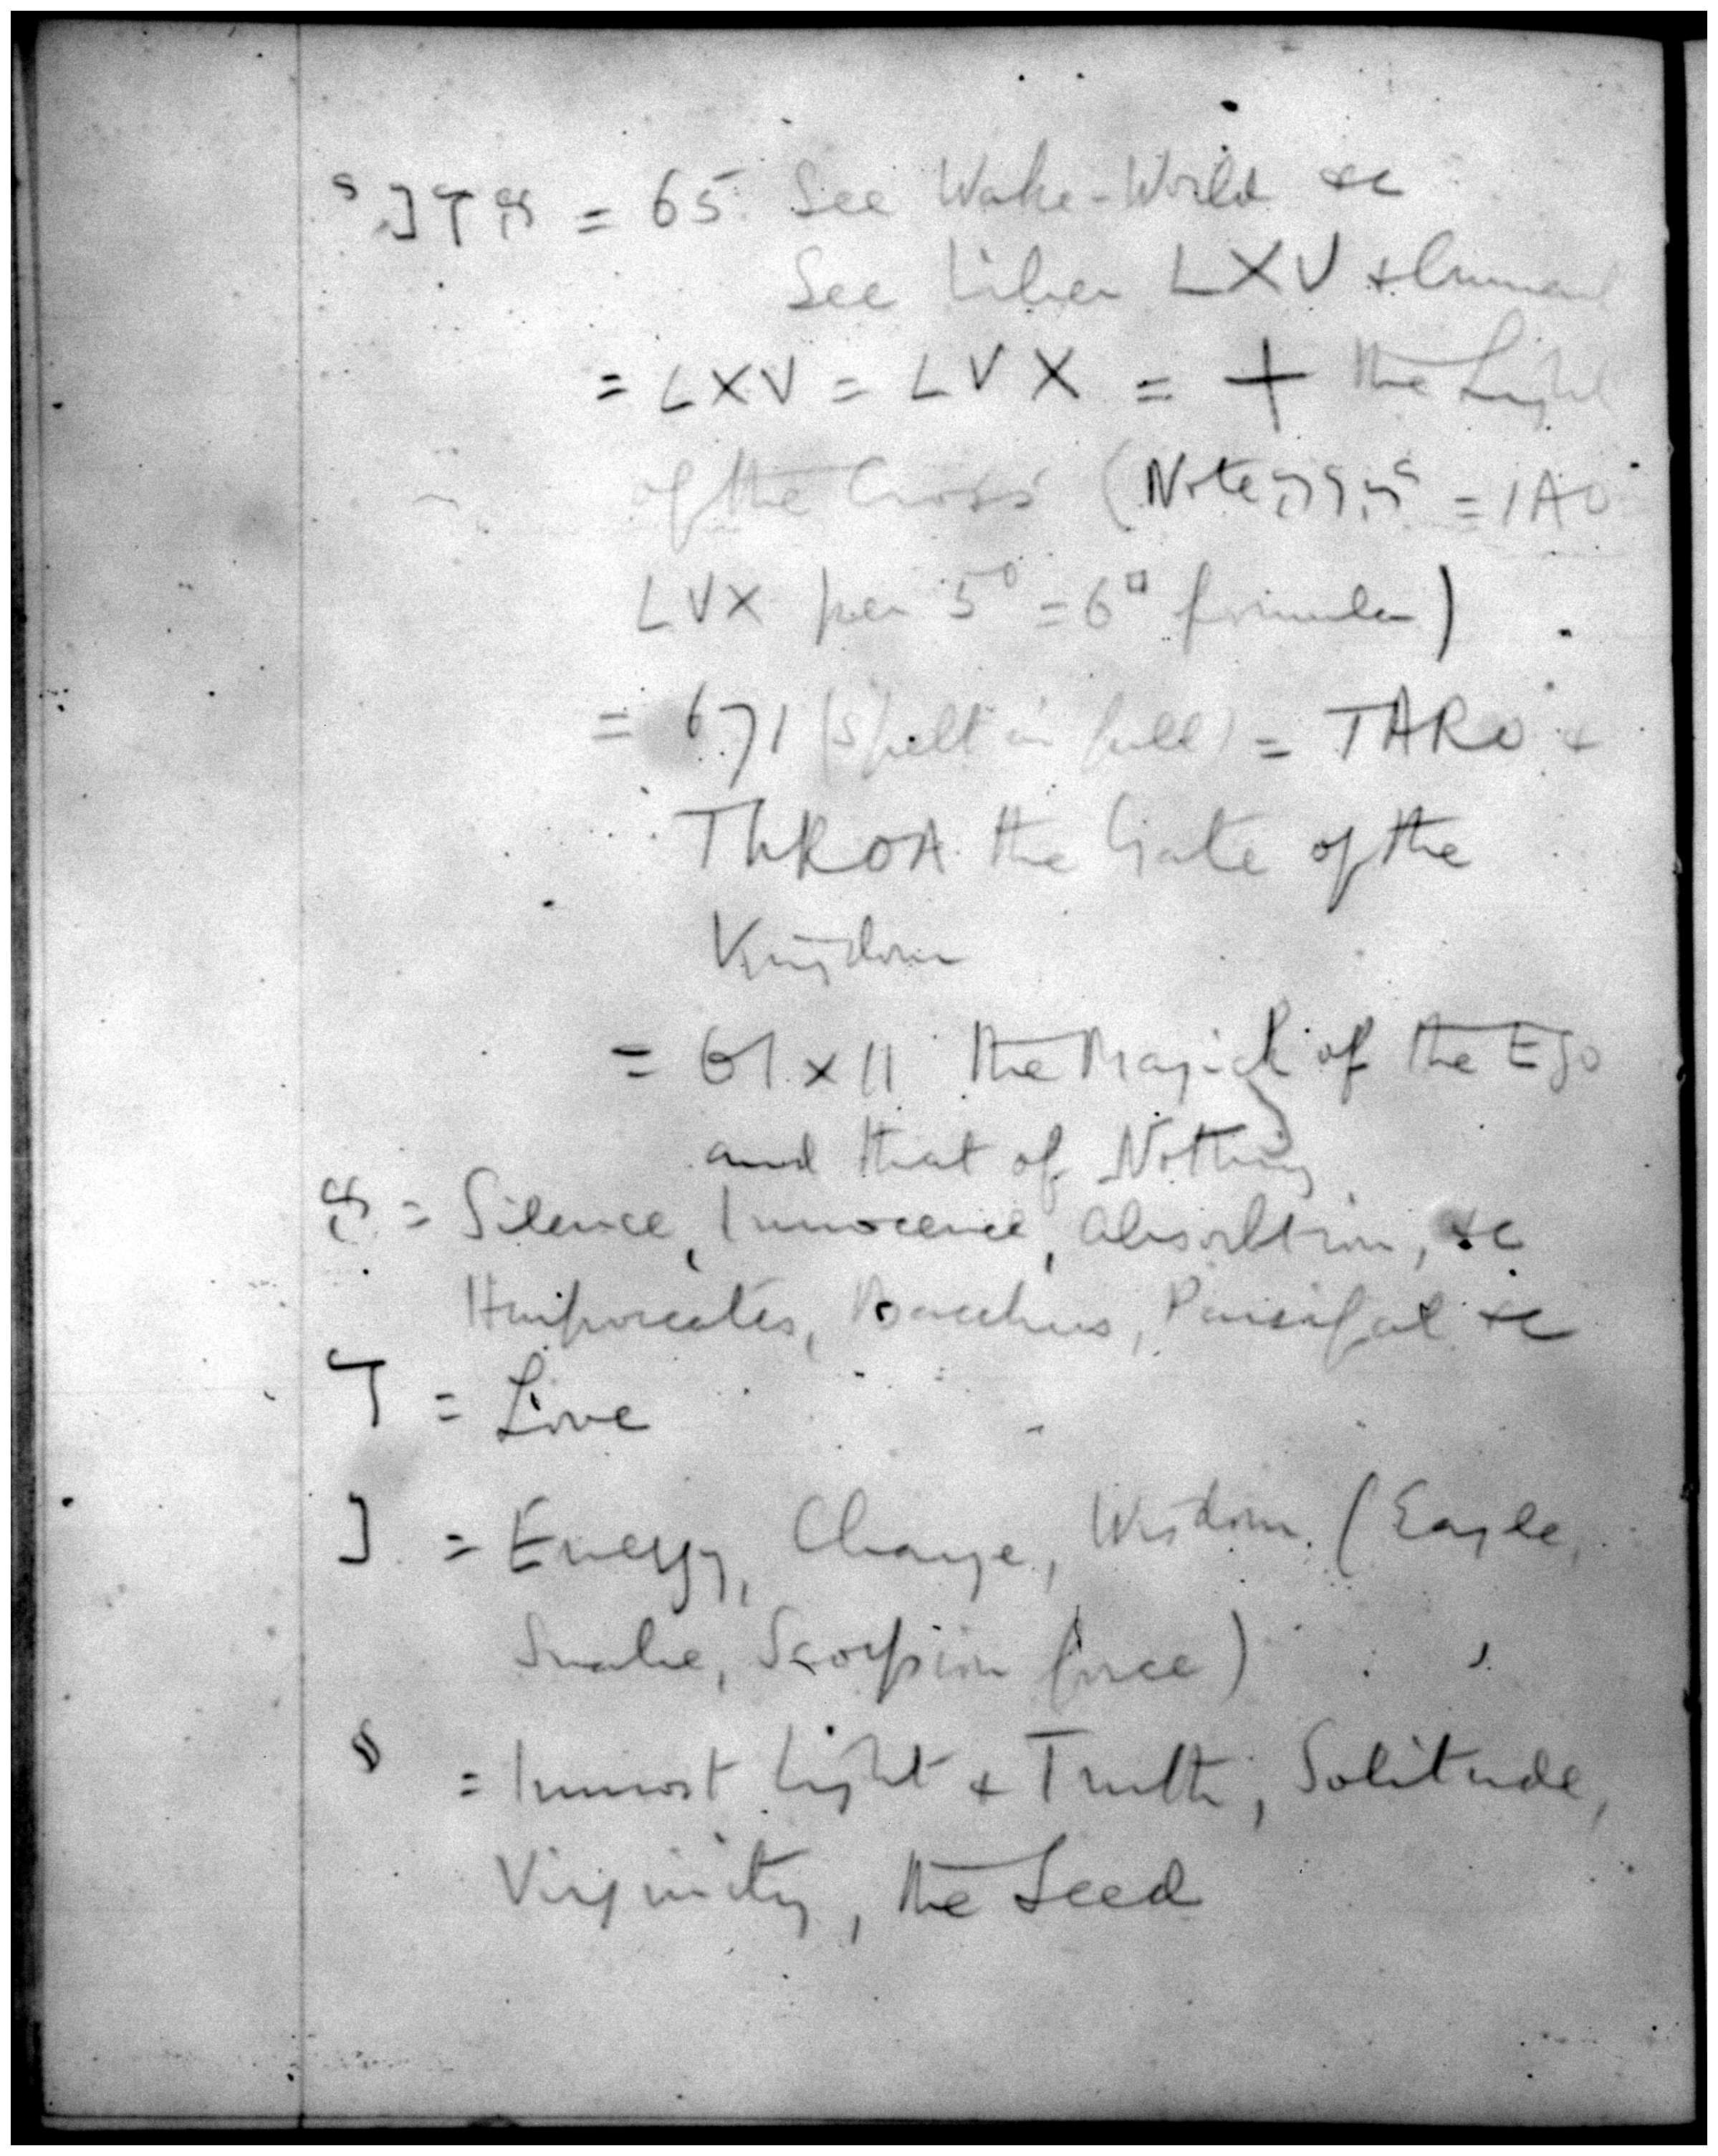 אדני = 65. See Wake-World &c
See Liber LXV &
= LXV = LVX = + the Light
of the Cross (Note = IAO
LVX per 5° = 6□ formula)
= 671 (spelt in full) = TARO &
ThROA the Gate of the
Kingdom
= 61 x 11 the Magick of the Ego
and that of Nothing
א = Silence, Innocence, Absorbtion, &c
Harpocrates, Bacchus, Parsifal &c
ד = Love
נ = Energy, Change, Wisdom (Eagle,
Snake, Scorpion force)
י = Inmost Light & Truth, Solitude,
Virginity, the Seed